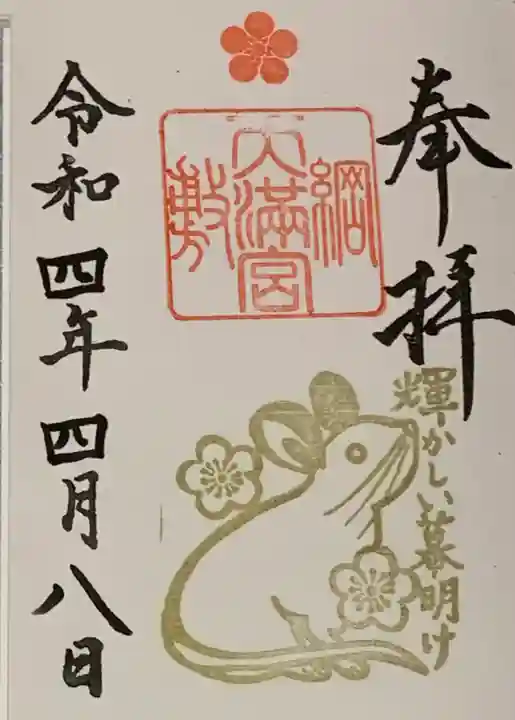 奉拝
綱敷天満宮
輝かしい幕明け
令和四年四月八日